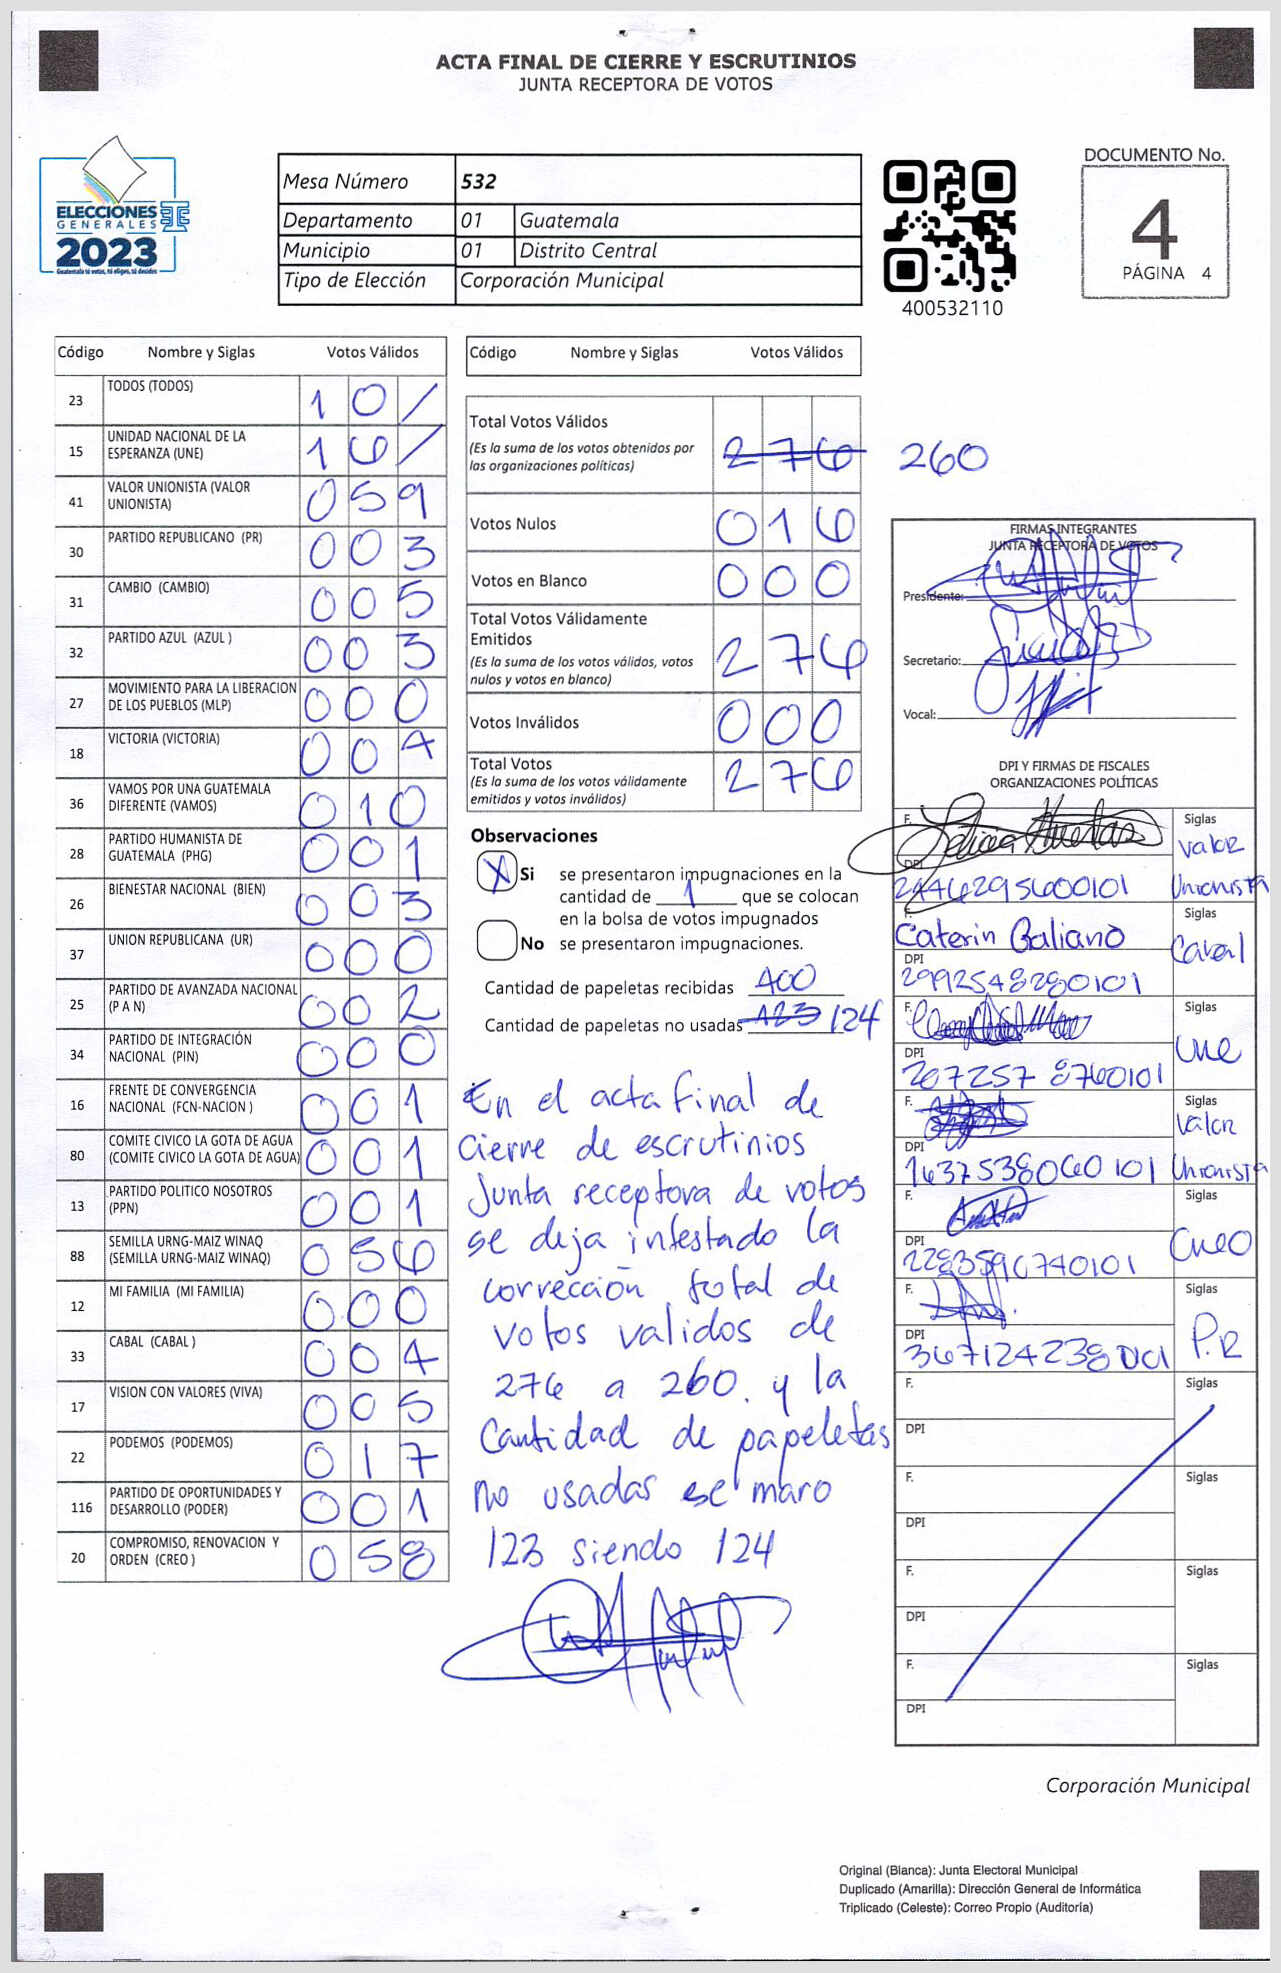 ACTA FINAL DE CIERRE Y ESCRUTINIOS
JUNTA RECEPTORA DE VOTOS
ELECCIONES
GENERALES
2023
Guatemala tú votas, tú eliges, tú decides
Mesa Número 532
Departamento 01 Guatemala
Municipio 01 Distrito Central
Tipo de Elección Corporación Municipal
400532110
DOCUMENTO No.
4
PÁGINA 4
Código Nombre y Siglas Votos Válidos
23 TODOS (TODOS) 1 0 /
15 UNIDAD NACIONAL DE LA ESPERANZA (UNE) 1 6 /
41 VALOR UNIONISTA (VALOR UNIONISTA) 0 5 9
30 PARTIDO REPUBLICANO (PR) 0 0 3
31 CAMBIO (CAMBIO) 0 0 5
32 PARTIDO AZUL (AZUL ) 0 0 3
27 MOVIMIENTO PARA LA LIBERACION DE LOS PUEBLOS (MLP) 0 0 0
18 VICTORIA (VICTORIA) 0 0 4
36 VAMOS POR UNA GUATEMALA DIFERENTE (VAMOS) 0 1 0
28 PARTIDO HUMANISTA DE GUATEMALA (PHG) 0 0 1
26 BIENESTAR NACIONAL (BIEN) 0 0 3
37 UNION REPUBLICANA (UR) 0 0 0
25 PARTIDO DE AVANZADA NACIONAL (P A N) 0 0 2
34 PARTIDO DE INTEGRACIÓN NACIONAL (PIN) 0 0 0
16 FRENTE DE CONVERGENCIA NACIONAL (FCN-NACION ) 0 0 1
80 COMITE CIVICO LA GOTA DE AGUA (COMITE CIVICO LA GOTA DE AGUA) 0 0 1
13 PARTIDO POLITICO NOSOTROS (PPN) 0 0 1
88 SEMILLA URNG-MAIZ WINAQ (SEMILLA URNG-MAIZ WINAQ) 0 5 6
12 MI FAMILIA (MI FAMILIA) 0 0 0
33 CABAL (CABAL ) 0 0 4
17 VISION CON VALORES (VIVA) 0 0 5
22 PODEMOS (PODEMOS) 0 1 7
116 PARTIDO DE OPORTUNIDADES Y DESARROLLO (PODER) 0 0 1
20 COMPROMISO, RENOVACION Y ORDEN (CREO ) 0 5 8
Código Nombre y Siglas Votos Válidos
Total Votos Válidos
(Es la suma de los votos obtenidos por
las organizaciones políticas) 2 7 6 260
Votos Nulos 0 1 6
Votos en Blanco 0 0 0
Total Votos Válidamente
Emitidos
(Es la suma de los votos válidos, votos
nulos y votos en blanco) 2 7 6
Votos Inválidos 0 0 0
Total Votos
(Es la suma de los votos válidamente
emitidos y votos inválidos) 2 7 6
Observaciones
X Si se presentaron impugnaciones en la
cantidad de 1 que se colocan
en la bolsa de votos impugnados
No se presentaron impugnaciones.
Cantidad de papeletas recibidas 400
Cantidad de papeletas no usadas 123 124
En el acta final de
cierre de escrutinios
Junta receptora de votos
se deja intestado la
corrección total de
votos validos de
276 a 260. y la
Cantidad de papeletas
no usadas se maro
123 siendo 124
FIRMAS INTEGRANTES
JUNTA RECEPTORA DE VOTOS
Presidente:
Secretario:
Vocal:
DPI Y FIRMAS DE FISCALES
ORGANIZACIONES POLÍTICAS
F. Siglas
Valor
DPI
2446295600101 Unionista
F. Siglas
Caterin Galiano Caval
DPI
2992548280101
F. Siglas
une
DPI
267257 8760101
F. Siglas
Valor
DPI
1637538060101 Unionista
F. Siglas
DPI
2283590740101
F. Siglas
P.R
DPI
F. Siglas
DPI
F. Siglas
DPI
F. Siglas
DPI
F. Siglas
DPI
Corporación Municipal
Original (Blanca): Junta Electoral Municipal
Duplicado (Amarilla): Dirección General de Informática
Triplicado (Celeste): Correo Propio (Auditoría)